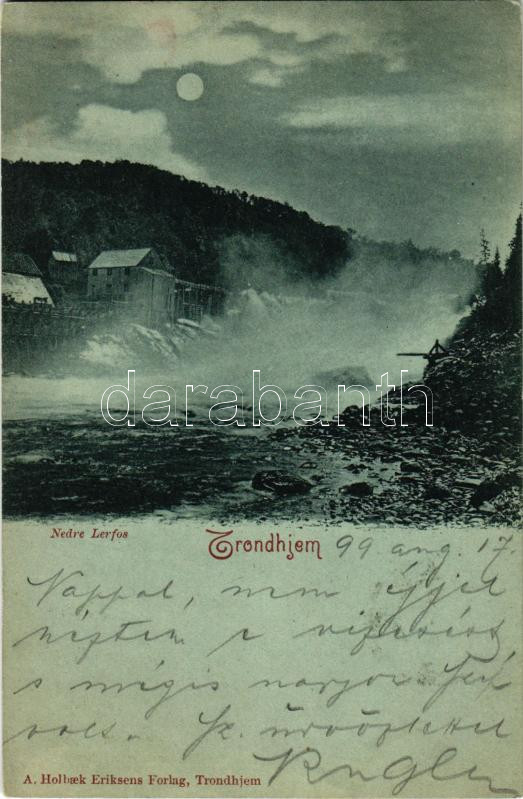 darabanth
Nedre Lerfos
Trondhjem 99 aug. 17.
Nappal, nem éjjel
néztem e vízesést
s mégis nagyon szép
volt. Sz. üdvözlettel
A. Holbæk Eriksens Forlag, Trondhjem